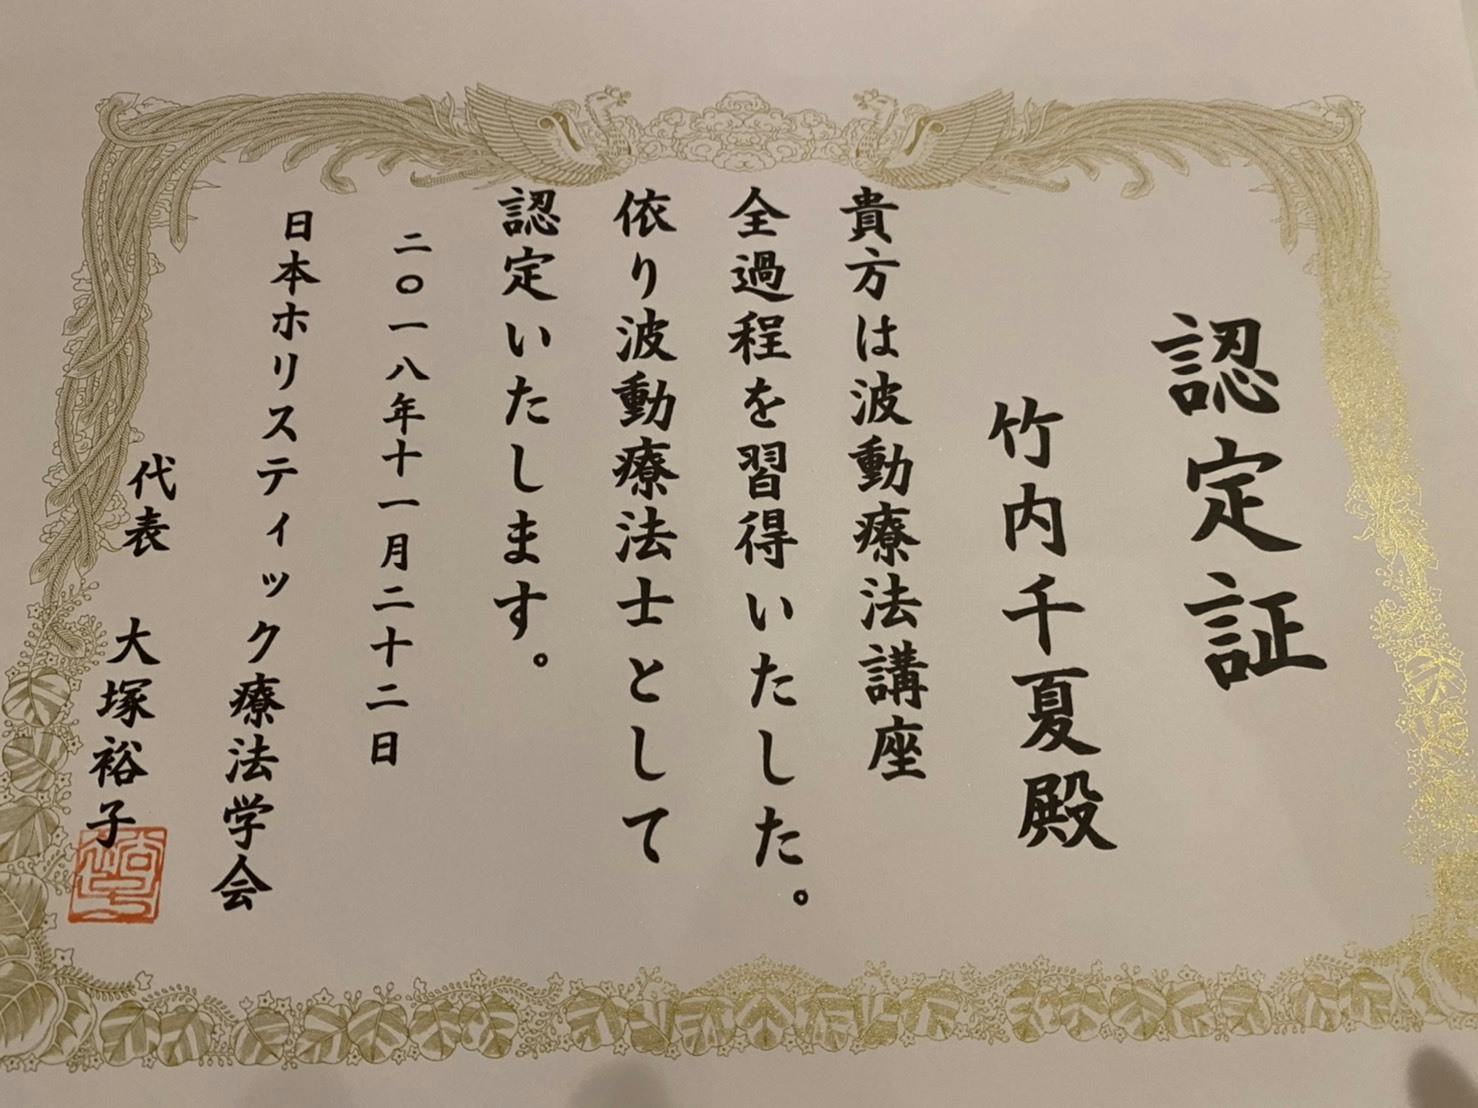 認定証
竹内千夏殿
貴方は波動療法講座
全過程を習得いたした。
依り波動療法士として
認定いたします。
二〇一八年十一月二十二日
日本ホリスティック療法学会
代表 大塚裕子